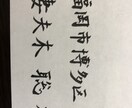 福岡市博多区
妻夫木 聡